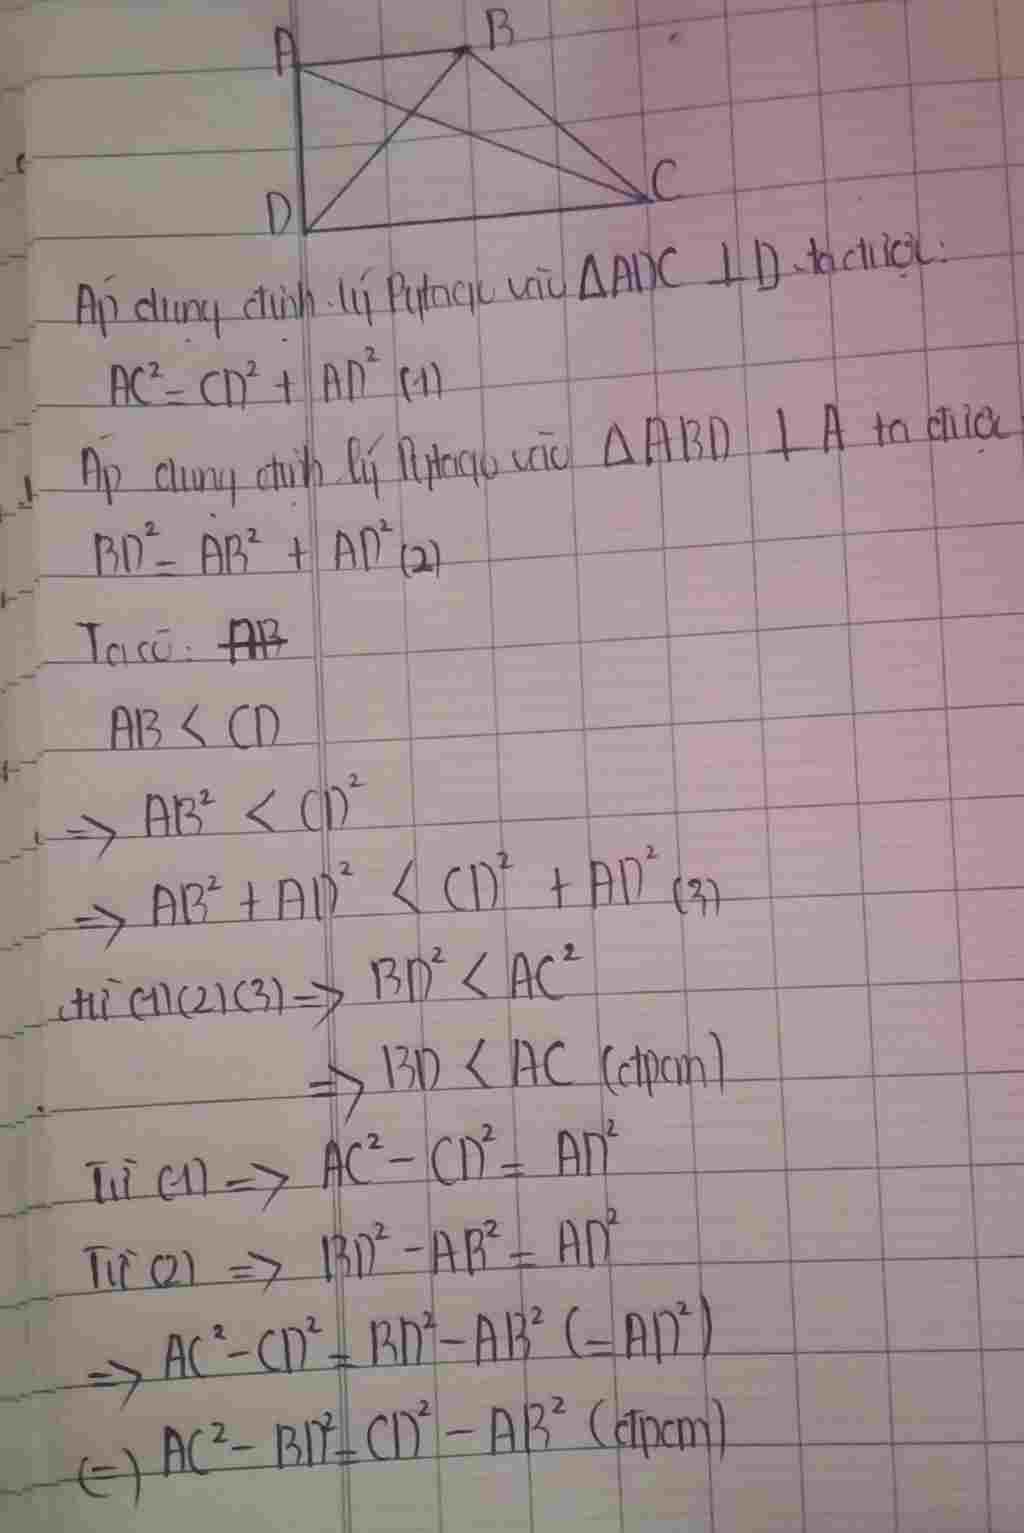 A
B
D
C
Áp dụng định lý Pytago vào ΔADC ⊥ D ta được:
AC² = CD² + AD² (1)
Áp dụng định lý Pytago vào ΔABD ⊥ A ta được
BD² = AB² + AD² (2)
Ta có: AB
AB < CD
=> AB² < CD²
=> AB² + AD² < CD² + AD² (3)
từ (1)(2)(3) => BD² < AC²
=> BD < AC (đpcm)
Từ (1) => AC² - CD² = AD²
Từ (2) => BD² - AB² = AD²
=> AC² - CD² = BD² - AB² (= AD²)
(=) AC² - BD² = CD² - AB² (đpcm)